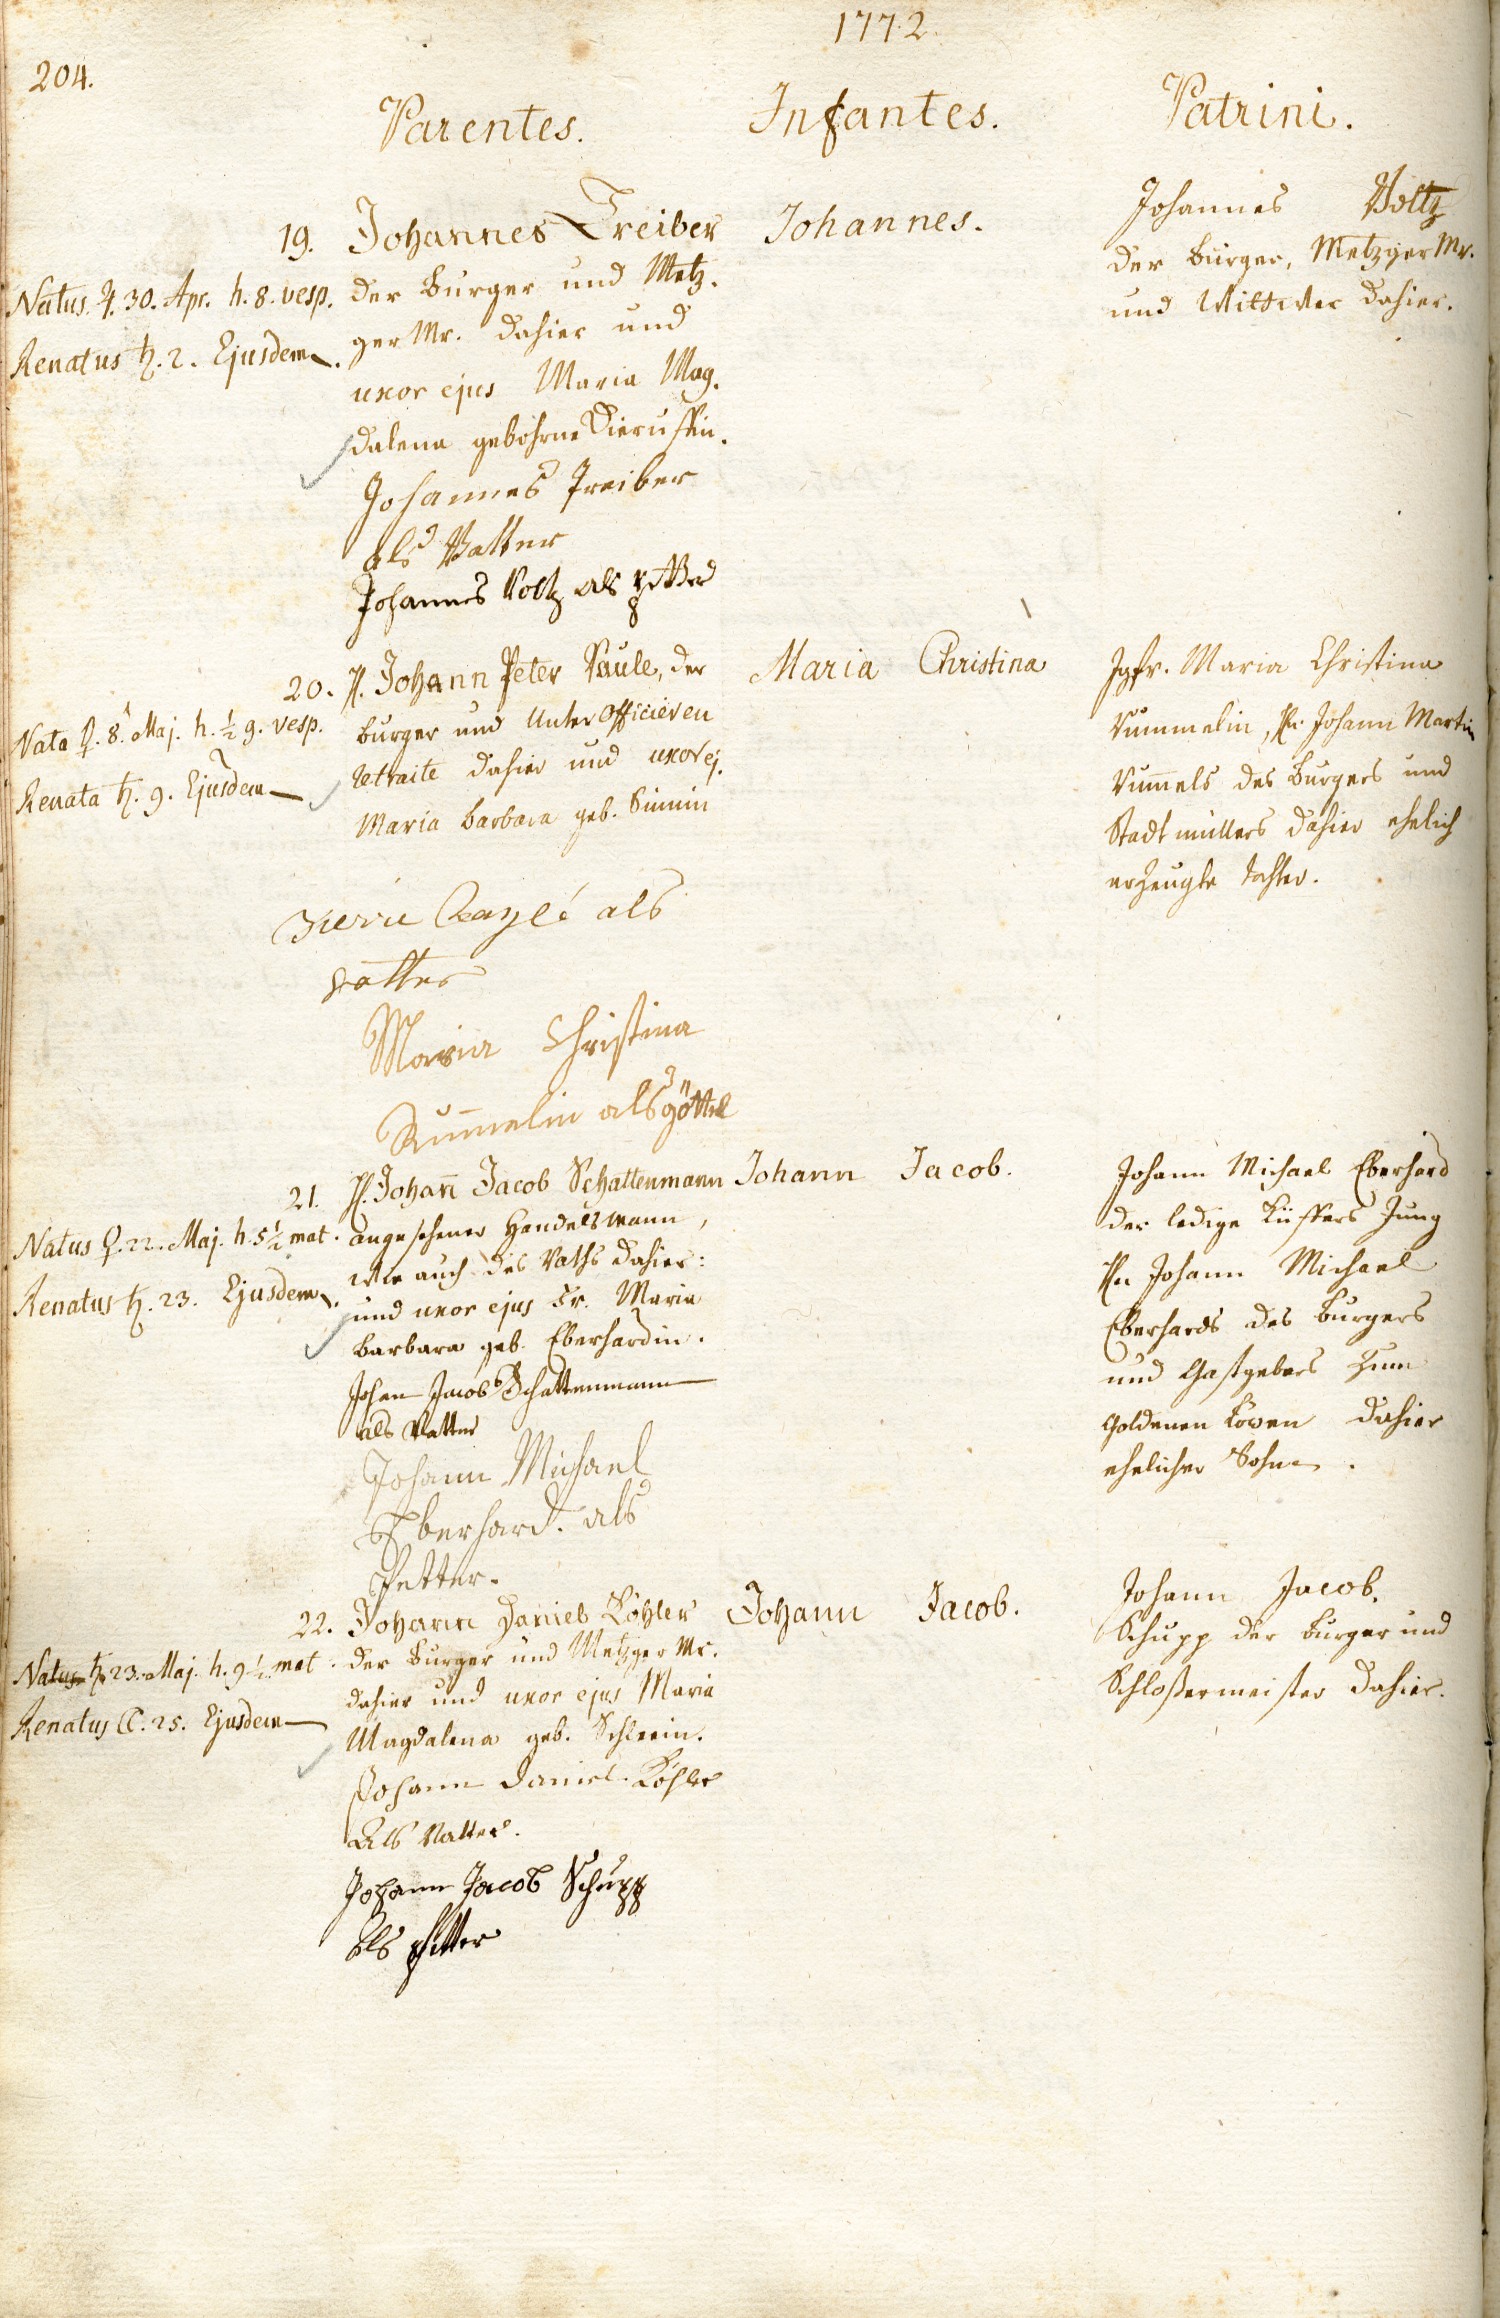 1772.
204.
Parentes. Infantes. Patrini.
19. Johannes Treiber
der burger und Metz-
ger Mr. dahier und
uxor ejus Maria Mag-
dalena gebohrne
Natus ♃. 30. Apr. h. 8. vesp.
Renatus ♄. 2. Ejusdem.
Johannes Treiber
als Vatter
Johannes Voltz als petter
Johannes.
Johannes Voltz
der burger, Metzger Mr.
und Wittwer dahier.
20. H. Johann Peter der
burger und Unter Officier en
retraite dahier und uxor ej.
Maria Barbara geb.
Nata ♀. 8. Maj. h. ½ 9. vesp.
Renata ♄. 9. Ejusdem
als
vatter
Maria Christina
Rummelin als göttel
Maria Christina
Jgfr. Maria Christina
Rummelin, Hn. Johann Martin
Rum̄els des burgers und
Stadtmüllers dahier ehelich
erzeugte tochter.
21. H. Johan̄ Jacob Schattenmann
angesehener Handelsmann,
wie auch des Raths dahier:
und uxor ejus Fr. Maria
Barbara geb. Eberhardin.
Natus ♀. 22. Maj. h. 5½ mat.
Renatus ♄. 23. Ejusdem.
Johan Jacob Schattenmann
als Vatter
Johann Michael
Eberhard. als
Petter.
Johann Jacob.
Johann Michael Eberhard
der ledige Küffer, Jung
Hn Johann Michael
Eberhards des burgers
und Gastgebers zum
goldenen Löwen dahier
ehelicher Sohn.
22. Johann Daniel Köhler
der burger und Metzger Mr.
dahier und uxor ejus Maria
Magdalena geb.
Natus ♄. 23. Maj. h. 9½. mat.
Renatus ☾. 25. Ejusdem
Johann Daniel Köhler
Als Vatter.
Johann Jacob Schupp
Als petter
Johann Jacob.
Johann Jacob
Schupp der burger und
Schloßermeister dahier.